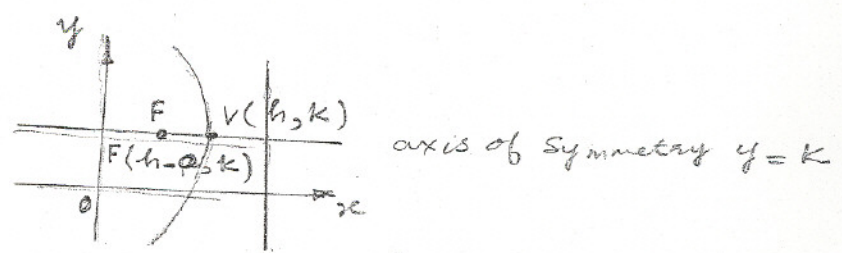 y
F V(h,k)
F(h-a,k)
axis of symmetry y=k
0
x